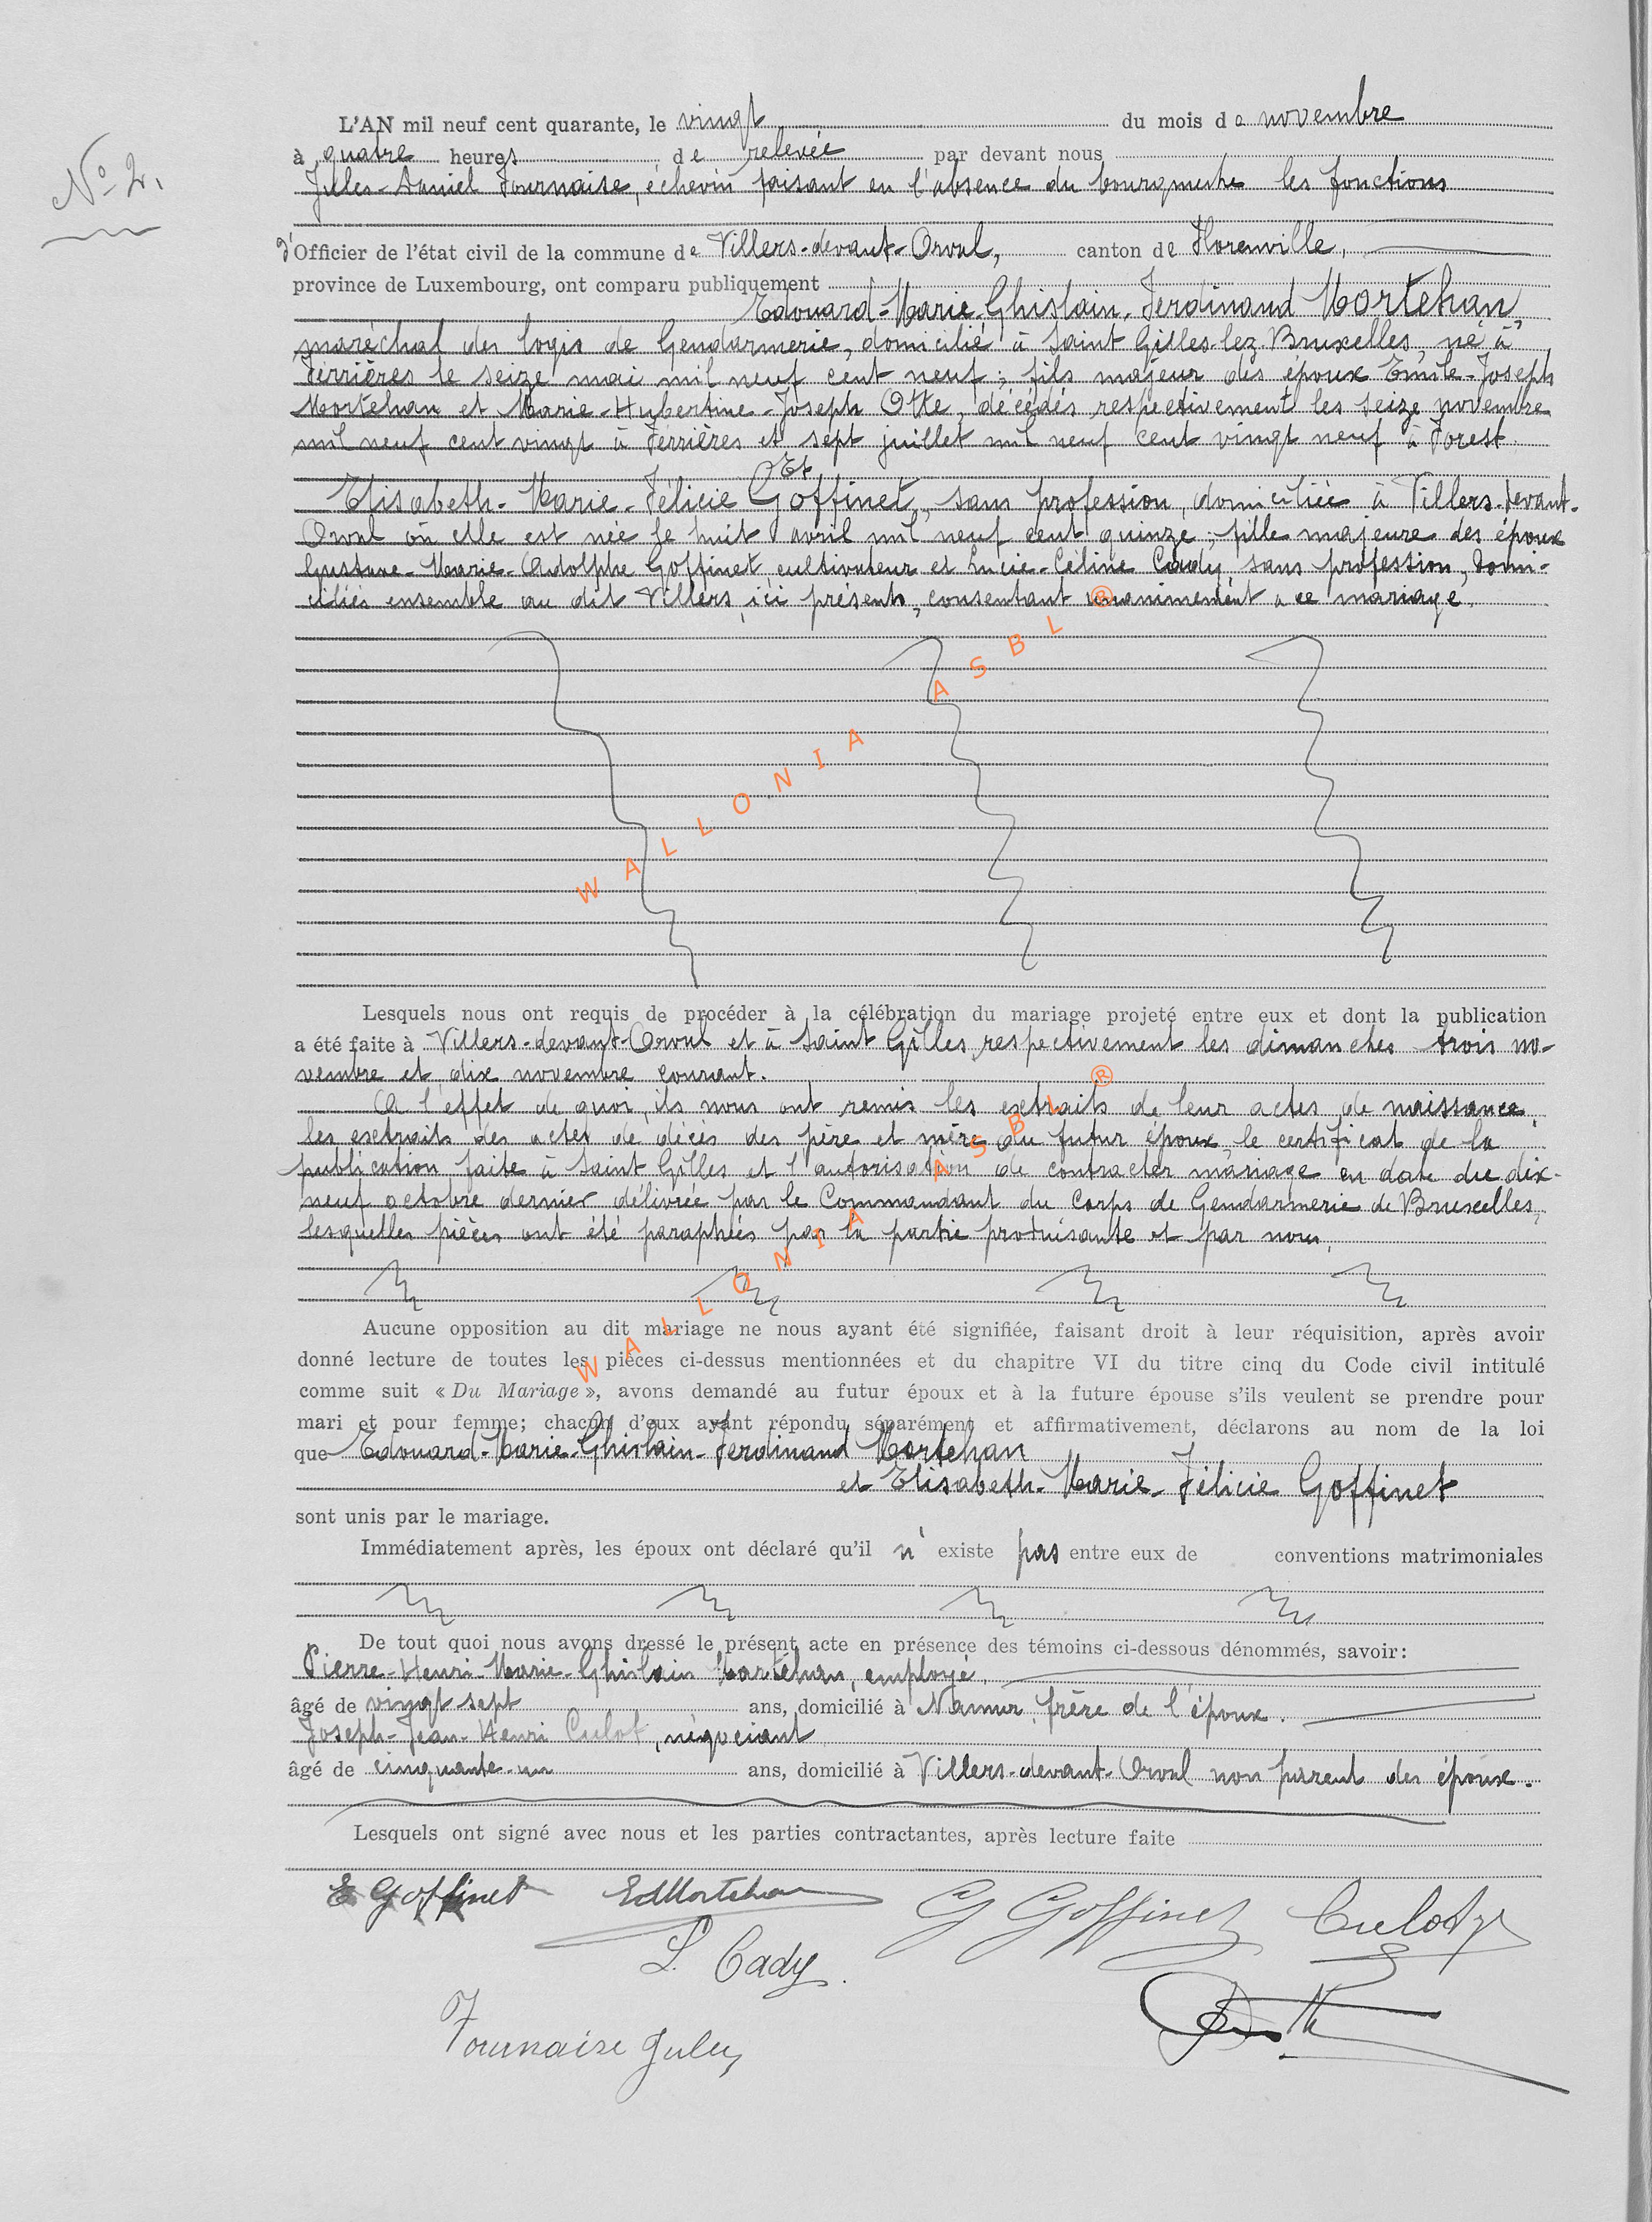 N° 2.
L'AN mil neuf cent quarante, le vingt du mois de novembre
à quatre heures de relevée par devant nous
Jules-Daniel Fournaise, échevin faisant en l'absence du bourgmestre les fonctions
d'Officier de l'état civil de la commune de Villers-devant-Orval, canton de Florenville,
province de Luxembourg, ont comparu publiquement
Edouard-Marie-Ghislain-Ferdinand Mortehan,
maréchal des logis de Gendarmerie, domicilié à Saint Gilles-lez-Bruxelles, né à
Ferrières le seize mai mil neuf cent neuf; fils majeur des époux Emile-Joseph
Mortehan et Marie-Hubertine-Joseph Otte, décédés respectivement les seize novembre
mil neuf cent vingt à Ferrières et sept juillet mil neuf cent vingt neuf à Forest.
Et
Elisabeth-Marie-Félicie Goffinet, sans profession, domiciliée à Villers-devant-
Orval où elle est née le huit avril mil neuf cent quinze; fille majeure des époux
Gustave-Marie-Adolphe Goffinet cultivateur et Lucie-Céline Cady, sans profession, domi-
ciliés ensemble au dit Villers, ici présents, consentant unanimement à ce mariage.
WALLONIA ASBL ®
Lesquels nous ont requis de procéder à la célébration du mariage projeté entre eux et dont la publication
a été faite à Villers-devant-Orval et à Saint Gilles respectivement les dimanches trois no-
vembre et dix novembre courant.
A l'effet de quoi, ils nous ont remis les extraits de leur actes de naissance,
les extraits des actes de décès des père et mère du futur époux, le certificat de la
publication faite à Saint Gilles et l'autorisation de contracter mariage en date du dix-
neuf octobre dernier délivrée par le Commandant du Corps de Gendarmerie de Bruxelles,
lesquelles pièces ont été paraphées par la partie produisante et par nous.
WALLONIA ASBL ®
Aucune opposition au dit mariage ne nous ayant été signifiée, faisant droit à leur réquisition, après avoir
donné lecture de toutes les pièces ci-dessus mentionnées et du chapitre VI du titre cinq du Code civil intitulé
comme suit « Du Mariage », avons demandé au futur époux et à la future épouse s'ils veulent se prendre pour
mari et pour femme; chacun d'eux ayant répondu séparément et affirmativement, déclarons au nom de la loi
que Edouard-Marie-Ghislain-Ferdinand Mortehan
et Elisabeth-Marie-Félicie Goffinet
sont unis par le mariage.
Immédiatement après, les époux ont déclaré qu'il n'existe pas entre eux de conventions matrimoniales
De tout quoi nous avons dressé le présent acte en présence des témoins ci-dessous dénommés, savoir:
Pierre-Henri-Marie-Ghislain Mortehan, employé,
âgé de vingt-sept ans, domicilié à Namur, frère de l'époux.
Joseph-Jean-Henri Culot, négociant
âgé de cinquante-un ans, domicilié à Villers-devant-Orval non parent des époux.
Lesquels ont signé avec nous et les parties contractantes, après lecture faite
E Goffinet EdMortehan G Goffinet Culot
L. Cady.
Fournaise Jules